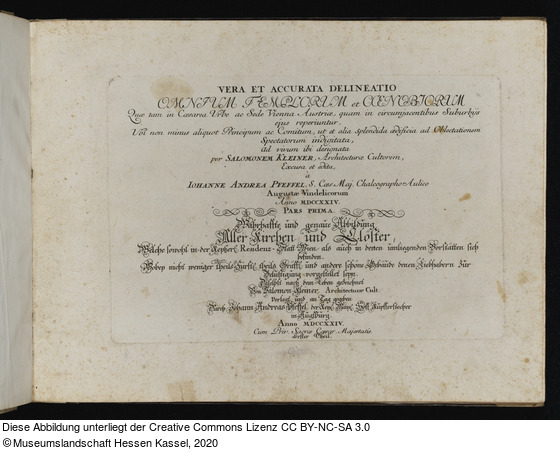 VERA ET ACCURATA DELINEATIO
OMNIUM TEMPLORUM et COENOBIORUM
Quæ tam in Cæsarea Urbe ac Sede Vienna Austriæ, quam in circumjacentibus Suburbijs
ejus reperiuntur,
Uti non minus aliquot Principum ac Comitum, ut et alia splendida ædificia ad Oblectationem
Spectatorum indigitata,
Ad vivum ibi designata
per SALOMONEM KLEINER, Architecturæ Cultorem,
Excusa et edita,
à
IOHANNE ANDREA PFEFFEL, S. Cæs. Maj. Chalcographo Aulico
Augustæ Vindelicorum
Anno MDCCXXIV.
PARS PRIMA.
Wahrhaffte und genaue Abbildung
Aller Kirchen und Clöster,
Welche sowohl in der Keyserl. Residenz-Statt Wien, als auch in denen umliegenden Vorstätten sich
befinden.
Wobey nicht weniger theils Fürstl. theils Gräffl. und andere schöne Gebäude denen Liebhabern zur
Belustigung vorgestellet seyn.
nach dem Leben gezeichnet
Von Salomon Kleiner, Architecturæ Cult.
Verlegt und an Tag gegeben
Durch Johann Andreas Pfeffel, der Röm. Keys. Maj. Hoff Kupfferstecher
in Augspurg.
Anno MDCCXXIV.
Cum Priv. Sacræ Cæsar. Majestatis
Erster Theil.
Diese Abbildung unterliegt der Creative Commons Lizenz CC BY-NC-SA 3.0
©Museumslandschaft Hessen Kassel, 2020